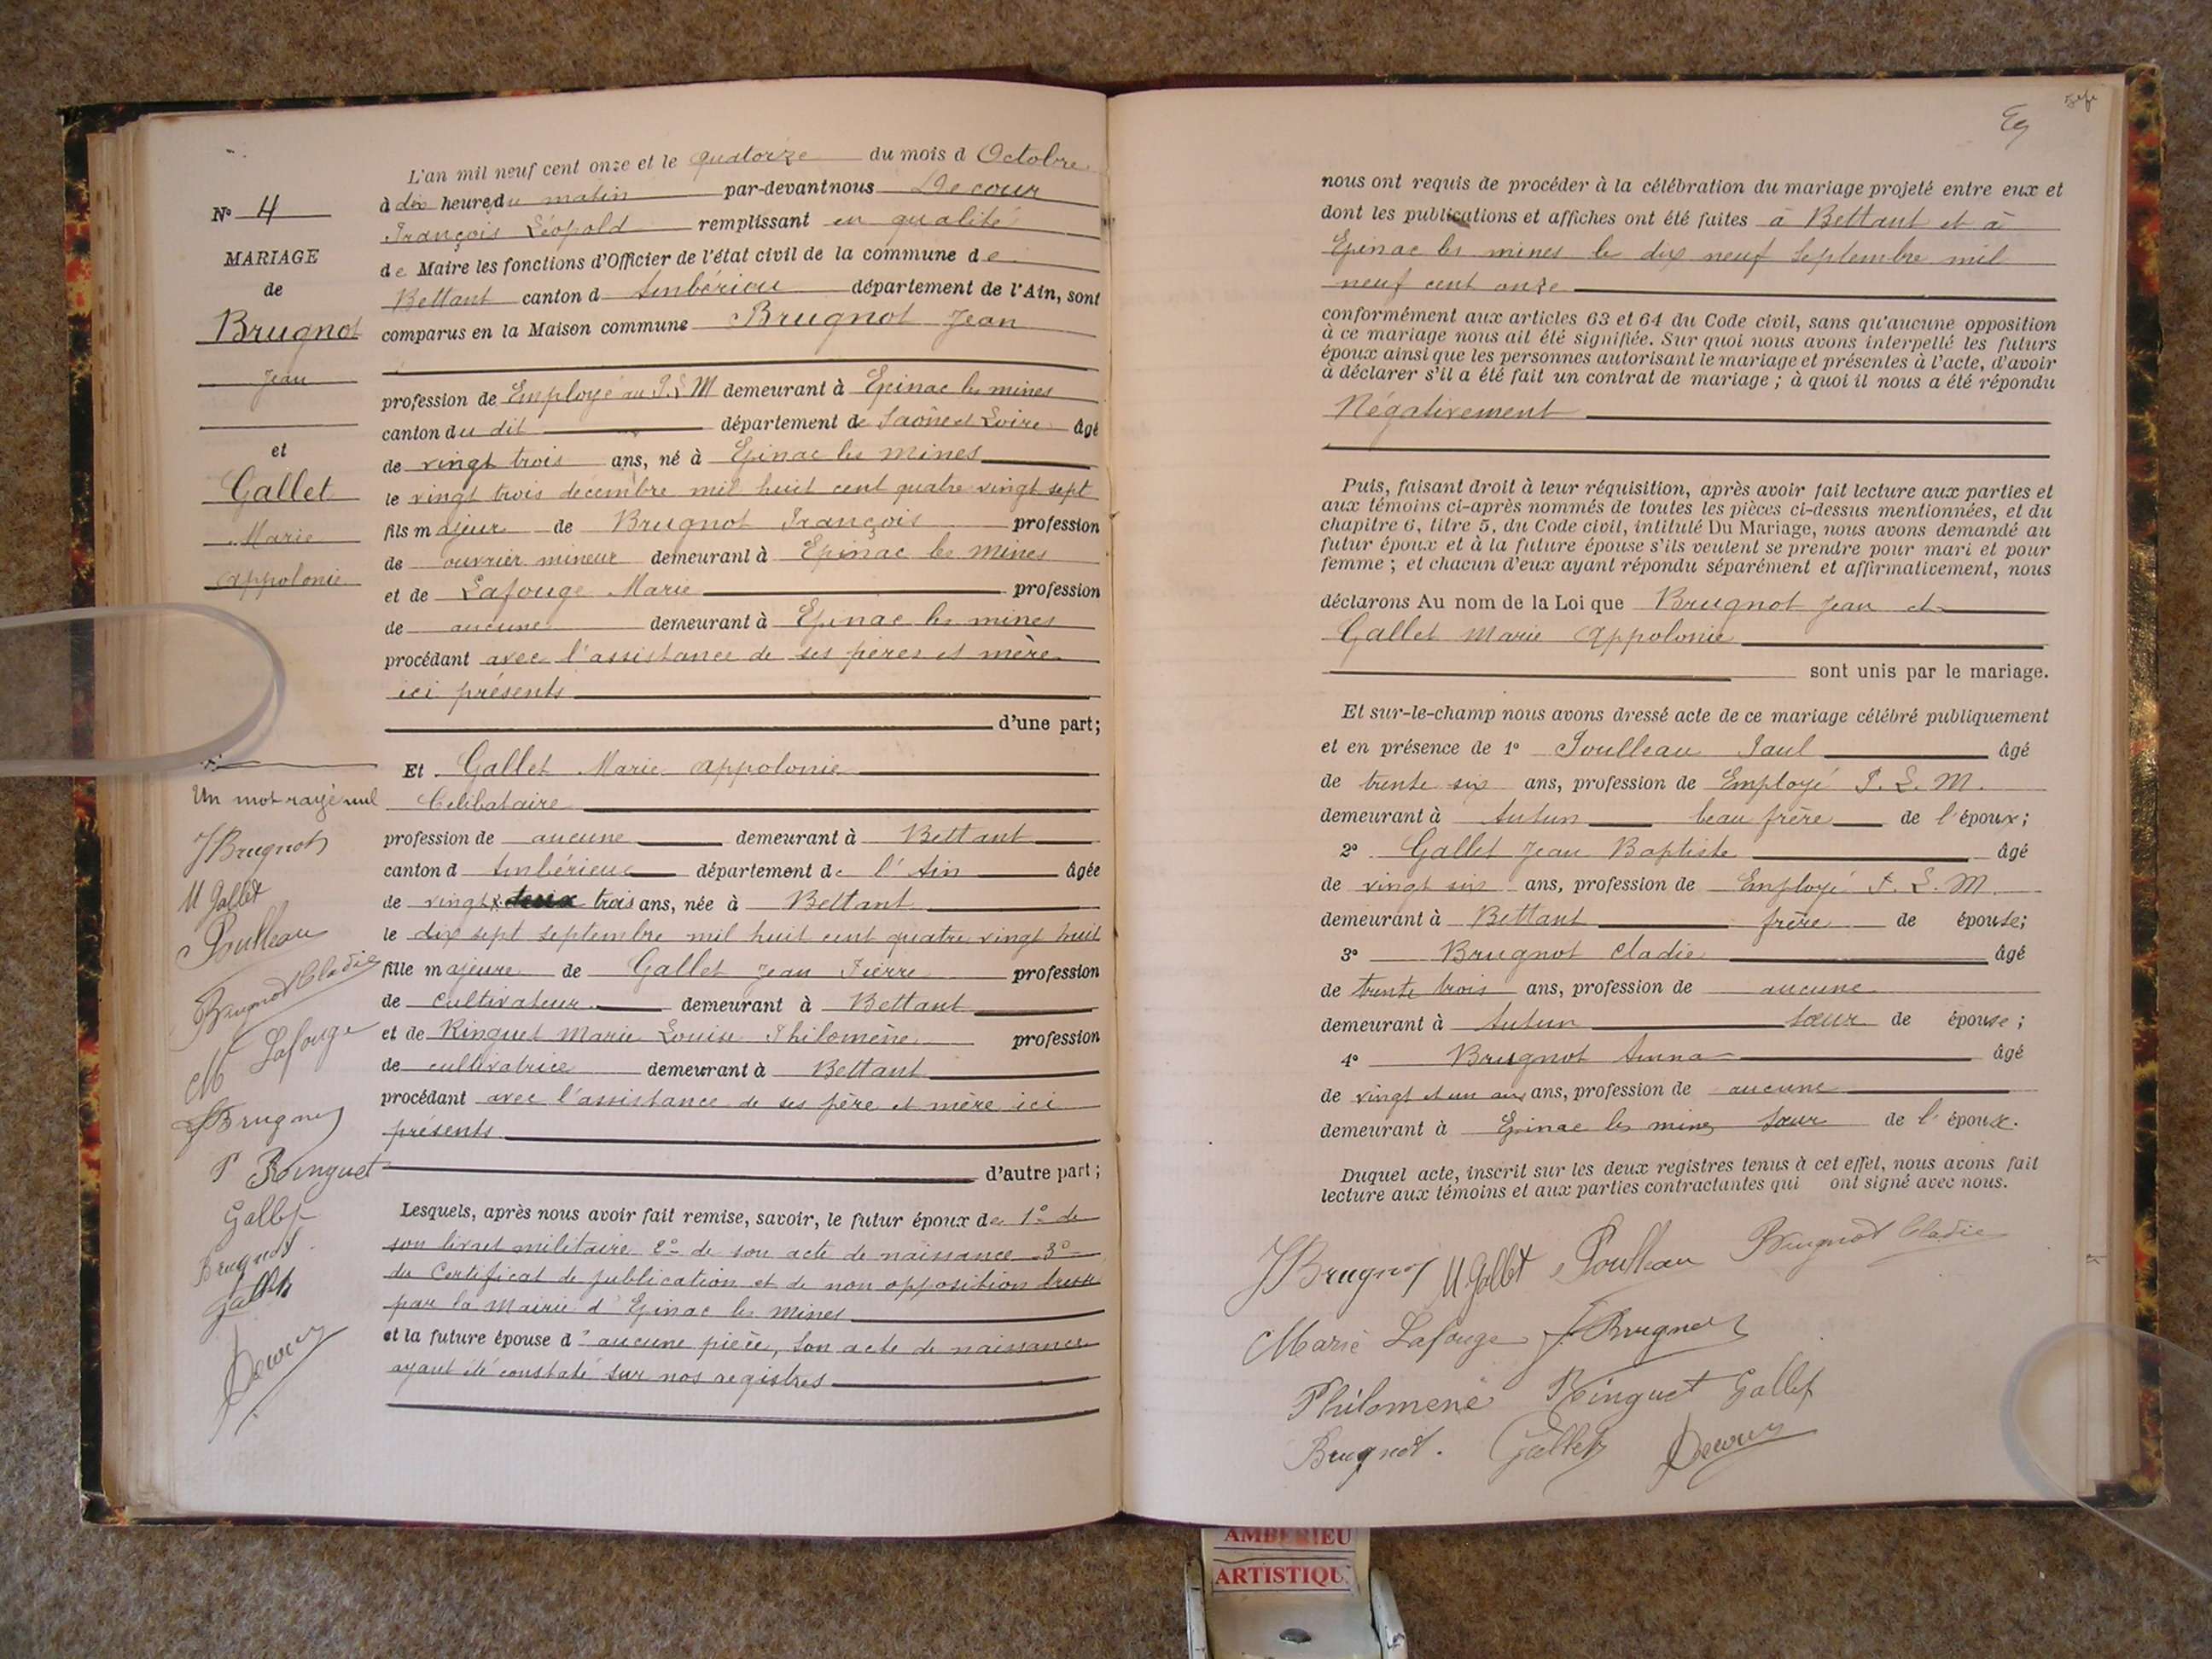 L'an mil neuf cent onze et le quatorze du mois d Octobre
à dix heures du matin par-devant nous Decour
François Léopold remplissant en qualité
de Maire les fonctions d'Officier de l'état civil de la commune de
Bettant canton d Ambérieu département de l'Ain, sont
comparus en la Maison commune Brugnot Jean
profession de Employé au P.L.M demeurant à Epinac les mines
canton du dit département de Saône et Loire âgé
de vingt trois ans, né à Epinac les Mines
le vingt trois décembre mil huit cent quatre vingt sept
fils majeur de Brugnot François profession
de ouvrier mineur demeurant à Epinac les Mines
et de Lafouge Marie profession
de aucune demeurant à Epinac les mines
procédant avec l'assistance de ses pères et mère
ici présents
d'une part;
Et Gallet Marie Appolonie
Celibataire
profession de aucune demeurant à Bettant
canton d Ambérieu département de l'Ain âgée
de vingt x deux trois ans, née à Bettant
le dix sept septembre mil huit cent quatre vingt huit
fille majeure de Gallet Jean Pierre profession
de cultivateur demeurant à Bettant
et de Ringuet Marie Louise Philomène profession
de cultivatrice demeurant à Bettant
procédant avec l'assistance de ses père et mère ici
présents
d'autre part;
Lesquels, après nous avoir fait remise, savoir, le futur époux de 1° de
son livret militaire 2° de son acte de naissance 3°
du Certificat de publication et de non opposition dressé
par la Mairie d'Epinac les Mines
et la future épouse d'aucune pièce, son acte de naissance
ayant été constaté sur nos registres
N° 4
MARIAGE
de
Brugnot
Jean
et
Gallet
Marie
Appolonie
Un mot rayé nul
J Brugnot
M Gallet
Poulleau
Brugnot Cladie
M Lafouge
F Brugnot
P Ringuet
Gallet
Brugnot
Gallet
Decour
nous ont requis de procéder à la célébration du mariage projeté entre eux et
dont les publications et affiches ont été faites à Bettant et à
Epinac les mines le dix neuf Septembre mil
neuf cent onze
conformément aux articles 63 et 64 du Code civil, sans qu'aucune opposition
à ce mariage nous ait été signifiée. Sur quoi nous avons interpellé les futurs
époux ainsi que les personnes autorisant le mariage et présentes à l'acte, d'avoir
à déclarer s'il a été fait un contrat de mariage ; à quoi il nous a été répondu
Négativement
Puis, faisant droit à leur réquisition, après avoir fait lecture aux parties et
aux témoins ci-après nommés de toutes les pièces ci-dessus mentionnées, et du
chapitre 6, titre 5, du Code civil, intitulé Du Mariage, nous avons demandé au
futur époux et à la future épouse s'ils veulent se prendre pour mari et pour
femme ; et chacun d'eux ayant répondu séparément et affirmativement, nous
déclarons Au nom de la Loi que Brugnot Jean et
Gallet Marie Appolonie
sont unis par le mariage.
Et sur-le-champ nous avons dressé acte de ce mariage célébré publiquement
et en présence de 1° Poulleau Paul âgé
de trente six ans, profession de Employé P.L.M.
demeurant à Autun beau frère de l'époux;
2° Gallet Jean Baptiste âgé
de vingt six ans, profession de Employé P.L.M.
demeurant à Bettant frère de épouse;
3° Brugnot Cladie âgé
de trente trois ans, profession de aucune
demeurant à Autun sœur de épouse;
4° Brugnot Anna âgé
de vingt et un ans ans, profession de aucune
demeurant à Epinac les mines sœur de l'époux.
Duquel acte, inscrit sur les deux registres tenus à cet effet, nous avons fait
lecture aux témoins et aux parties contractantes qui ont signé avec nous.
J Brugnot M. Gallet Poulleau Brugnot Cladie
Marie Lafouge F. Brugnot
Philomène Ringuet Gallet
Brugnot. Gallet Decour
AMBERIEU
ARTISTIQU